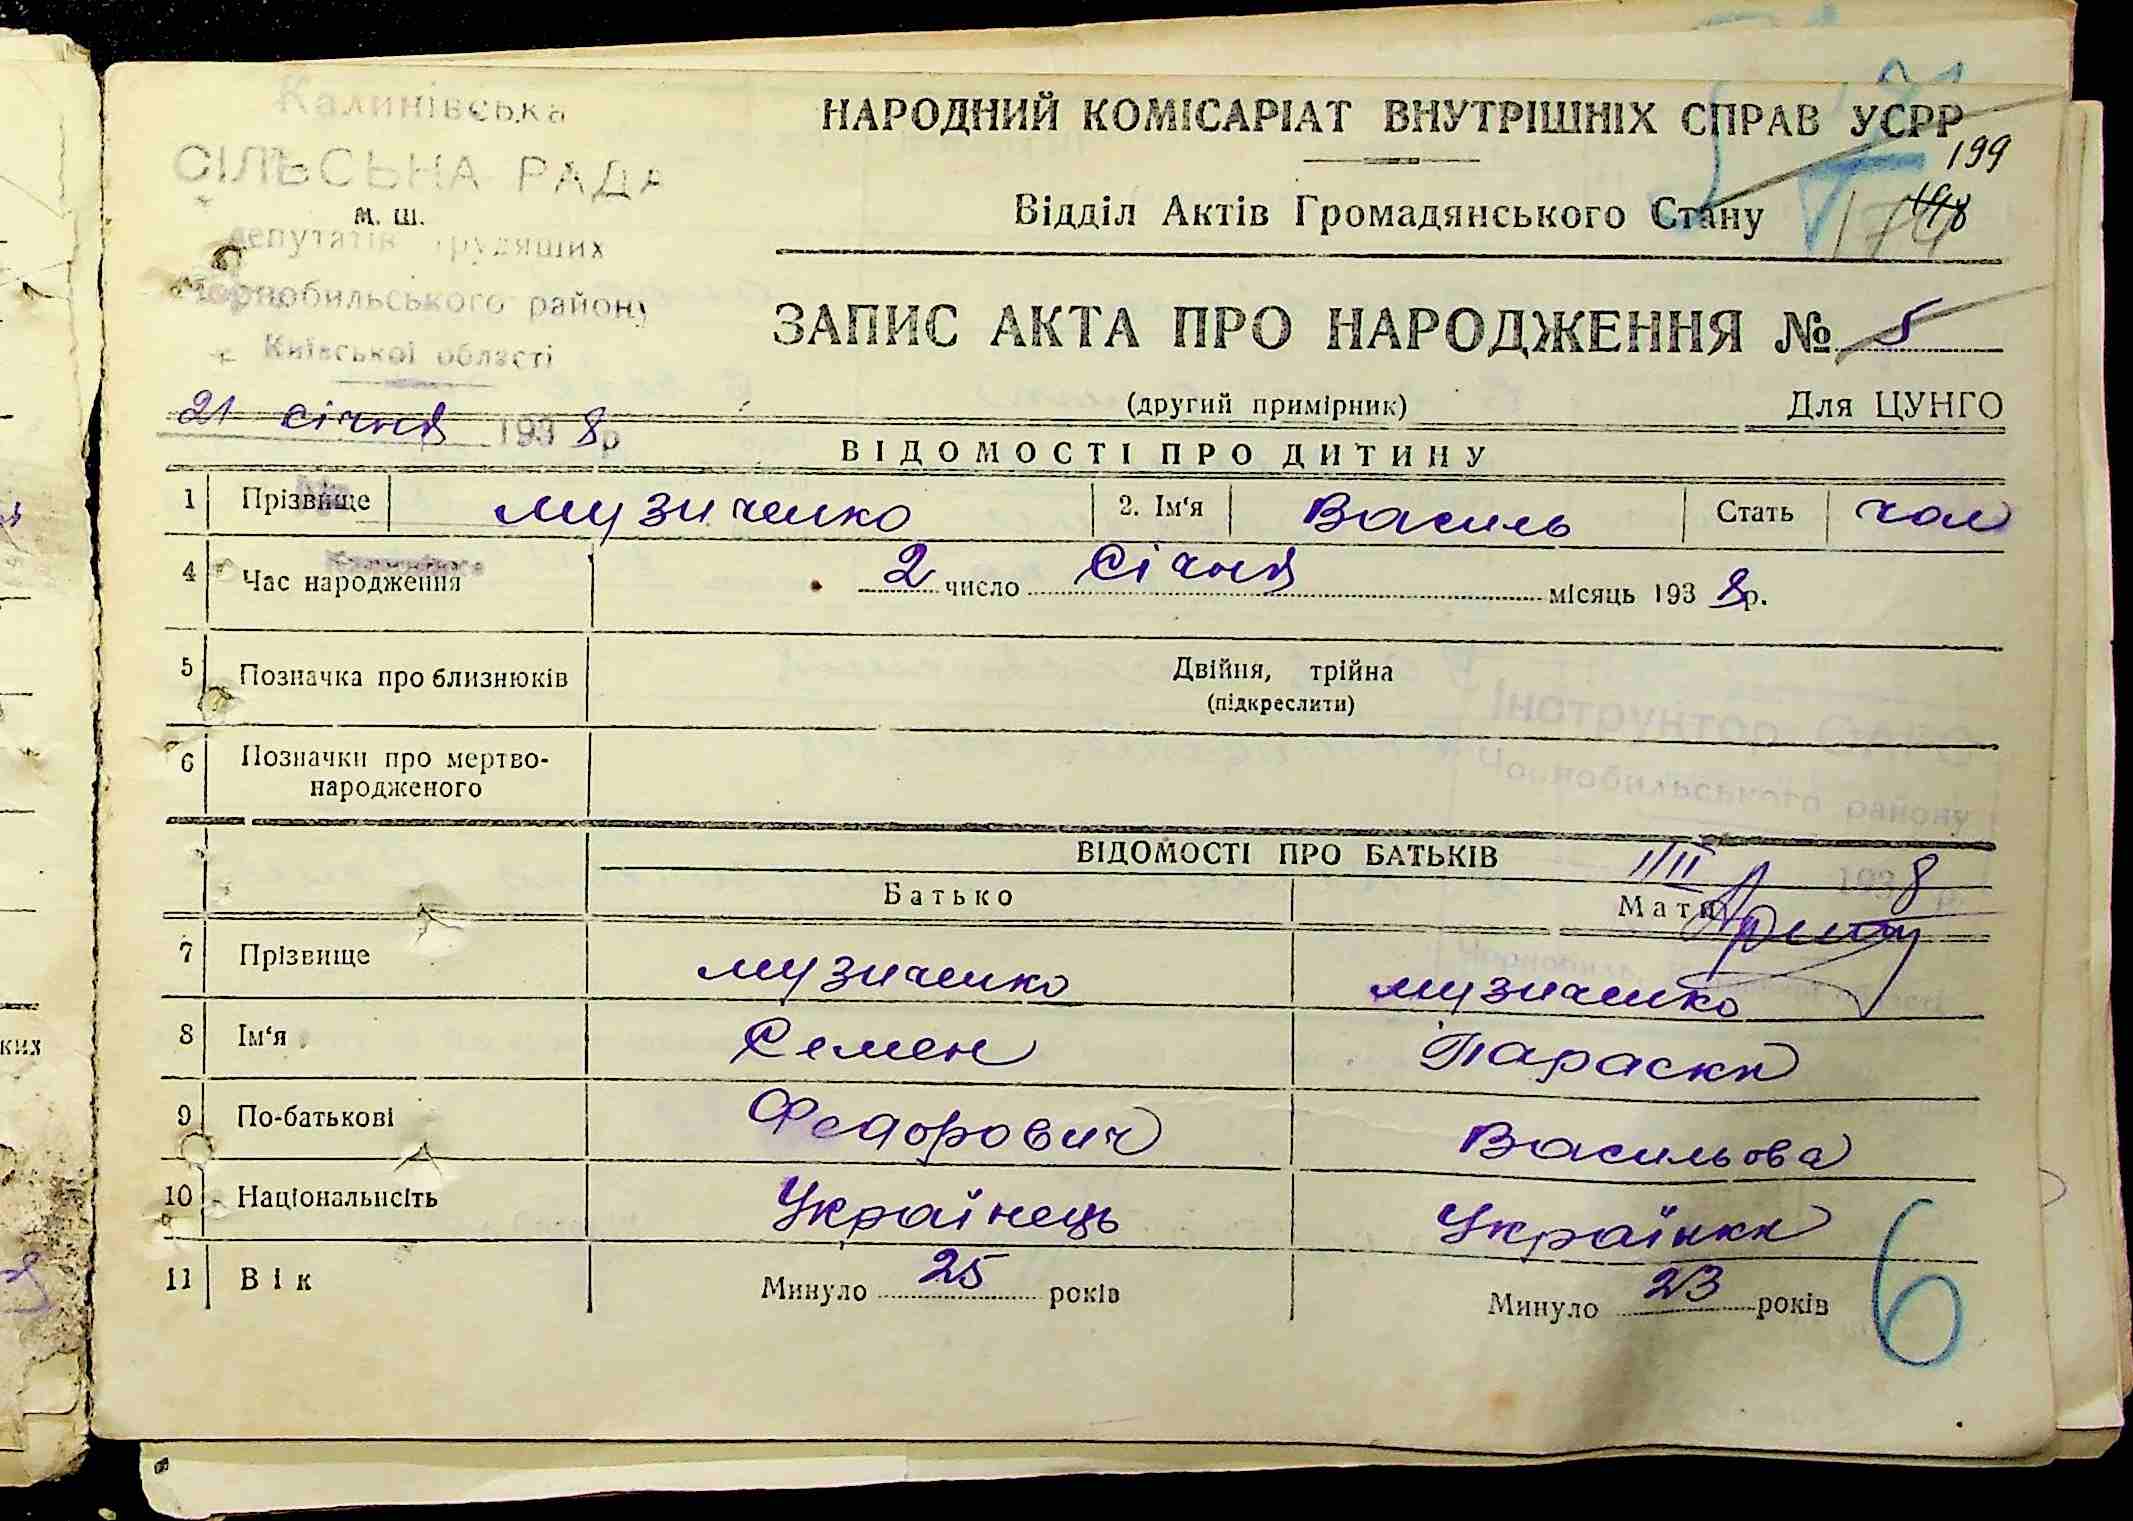 Калинівська
СІЛЬСЬКА РАДА
м. ш.
депутатів трудящих
Чорнобильського району
Київської області
21 січня 1938 р
НАРОДНИЙ КОМІСАРІАТ ВНУТРІШНІХ СПРАВ УСРР
199
Відділ Актів Громадянського Стану
ЗАПИС АКТА ПРО НАРОДЖЕННЯ № 5
(другий примірник) Для ЦУНГО
ВІДОМОСТІ ПРО ДИТИНУ
1 Прізвище Музиченко 2. Ім'я Василь Стать чол
4 Час народження 2 число Січня місяць 1938р.
5 Позначка про близнюків Двійня, трійна
(підкреслити)
Інструктор
Чорнобильського району
6 Позначки про мертво-
народженого
ВІДОМОСТІ ПРО БАТЬКІВ
1/II 1938 р.
Батько Мати
7 Прізвище Музиченко Музиченко
8 Ім'я Семен Параска
9 По-батькові Федорович Васильова
10 Національність Українець Українка
11 Вік Минуло 25 років Минуло 23 років
6
ких